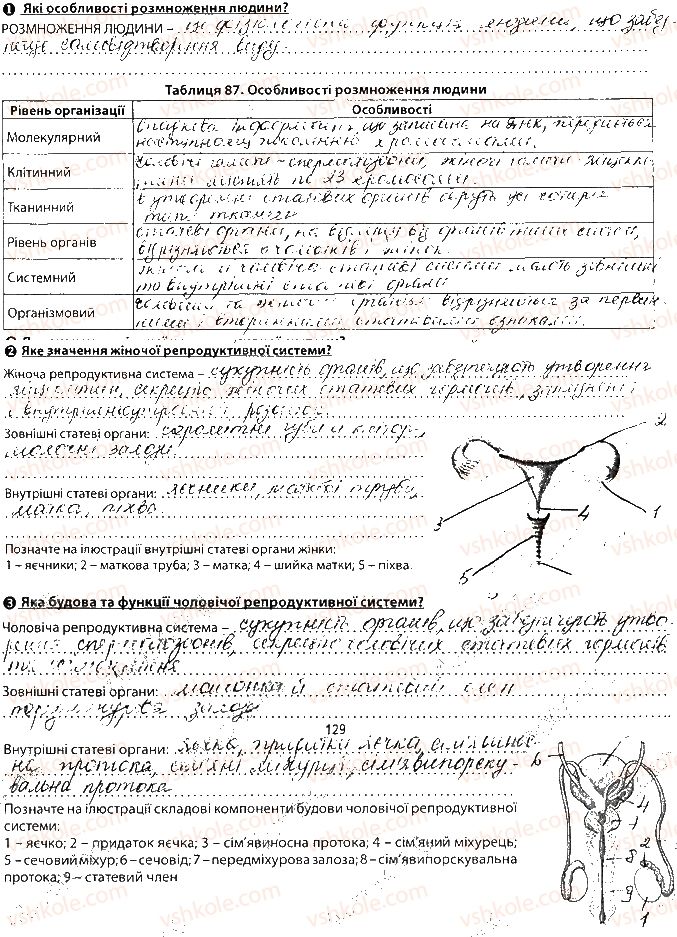 1 Які особливості розмноження людини?
РОЗМНОЖЕННЯ ЛЮДИНИ – це фізіологічна функція людини, що забез-
печує самовідтворення виду.
Таблиця 87. Особливості розмноження людини
Рівень організації Особливості
Молекулярний Спадкова інформація, що записана на ДНК, передається
наступному поколінню хромосомами.
Клітинний Чоловічі гамети – сперматозоїди, жіночі гамети – яйцеклі-
тини містять по 23 хромосоми.
Тканинний В утворенні статевих органів беруть усі чотири
типи тканин
Рівень органів Статеві органи, на відміну від органів інших систем,
відрізняються в чоловіків і жінок.
Системний Жіноча й чоловіча статеві системи мають зовнішні
та внутрішні статеві органи
Організмовий Чоловічий та жіночий організми відрізняються за первин-
ними і вторинними статевими ознаками.
2 Яке значення жіночої репродуктивної системи?
Жіноча репродуктивна система – сукупність органів, що забезпечують утворення
яйцеклітин, секрецію жіночих статевих гормонів, запліднення
і внутрішньоутробний розвиток
Зовнішні статеві органи: соромітні губи й клітор,
молочні залози
Внутрішні статеві органи: яєчники, маткові труби,
матка, піхва
Позначте на ілюстрації внутрішні статеві органи жінки:
1 – яєчники; 2 – маткова труба; 3 – матка; 4 – шийка матки; 5 – піхва.
2
3
4
1
5
3 Яка будова та функції чоловічої репродуктивної системи?
Чоловіча репродуктивна система – сукупність органів, що забезпечують утво-
рення сперматозоїдів, секрецію чоловічих статевих гормонів
та
Зовнішні статеві органи: мошонка й статевий член
залоза
129
Внутрішні статеві органи: яєчка, придатки яєчка, сім'явинос-
на протока, сім'яні міхурці, сім'явипорску-
вальна протока
Позначте на ілюстрації складові компоненти будови чоловічої репродуктивної
системи:
1 – яєчко; 2 – придаток яєчка; 3 – сім'явиносна протока; 4 – сім'яний міхурець;
5 – сечовий міхур; 6 – сечовід; 7 – передміхурова залоза; 8 – сім'явипорскувальна
протока; 9 – статевий член
6
4
7
2
8
9
1
vshkole.com